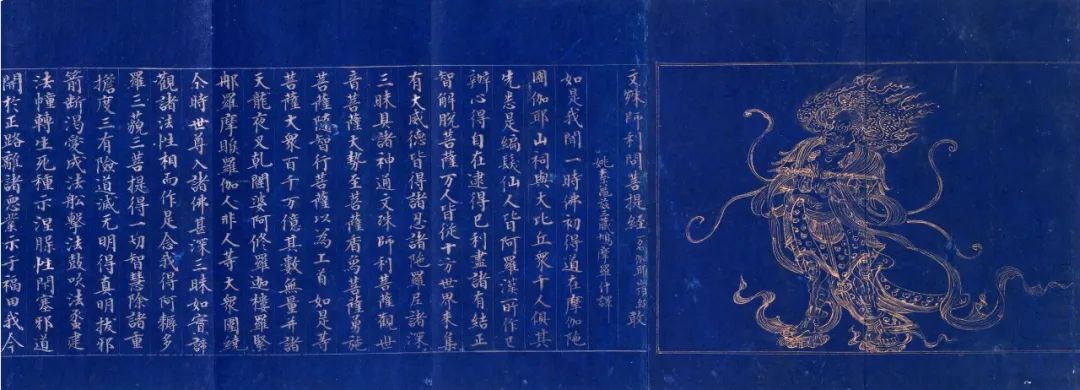 文殊師利問菩提經
姚秦龜茲三藏鳩摩羅什譯
如是我聞一時佛初得道在摩伽陁
國伽耶山祠與大比丘衆千人俱其
先悉是編髮仙人皆阿羅漢所作已
辦心得自在逮得已利盡諸有結正
智解脫菩薩万人皆從十方世界來集
有大威德皆得諸忍諸陁羅尼諸深
三昧具諸神通文殊師利菩薩觀世
音菩薩大勢至菩薩香烏菩薩勇施
菩薩隨智行菩薩以為上首如是等
菩薩大衆百千万億其數無量并諸
天龍夜叉乹闥婆阿修羅迦樓羅緊
那羅摩睺羅伽人非人等大衆圍繞
尒時世尊入諸佛甚深三昧如實諦
觀諸法性相而作是念我得阿耨多
羅三藐三菩提得一切智慧除諸重
擔度三有險道滅无明得真明拔邪
箭斷渴愛成法舩擊法鼓吹法䗍建
法幢轉生死種示涅槃性閇塞邪道
開於正路離諸惡業示于福田我今